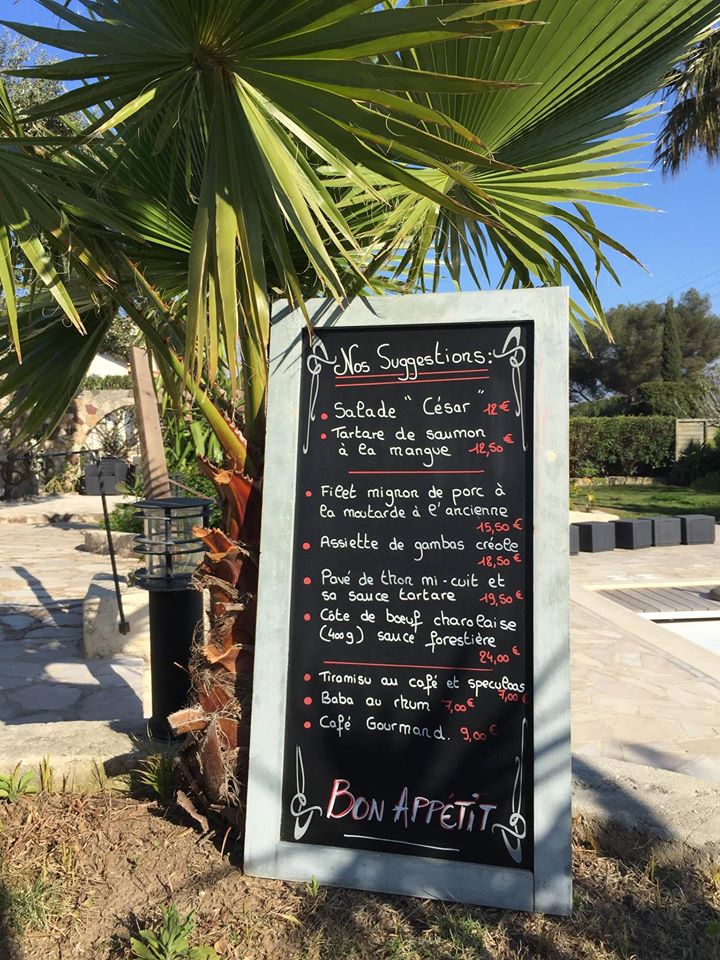 Nos Suggestions:
Salade "César" 12€
Tartare de saumon
à la mangue 12,50€
Filet mignon de porc à
la moutarde à l'ancienne
15,50€
Assiette de gambas créole
18,50€
Pavé de thon mi-cuit et
sa sauce tartare 19,50€
Côte de bœuf charolaise
(400g) sauce forestière
24,00€
Tiramisu au café et speculoos
7,00€
Baba au rhum 7,00€
Café Gourmand. 9,00€
BON APPÉTIT